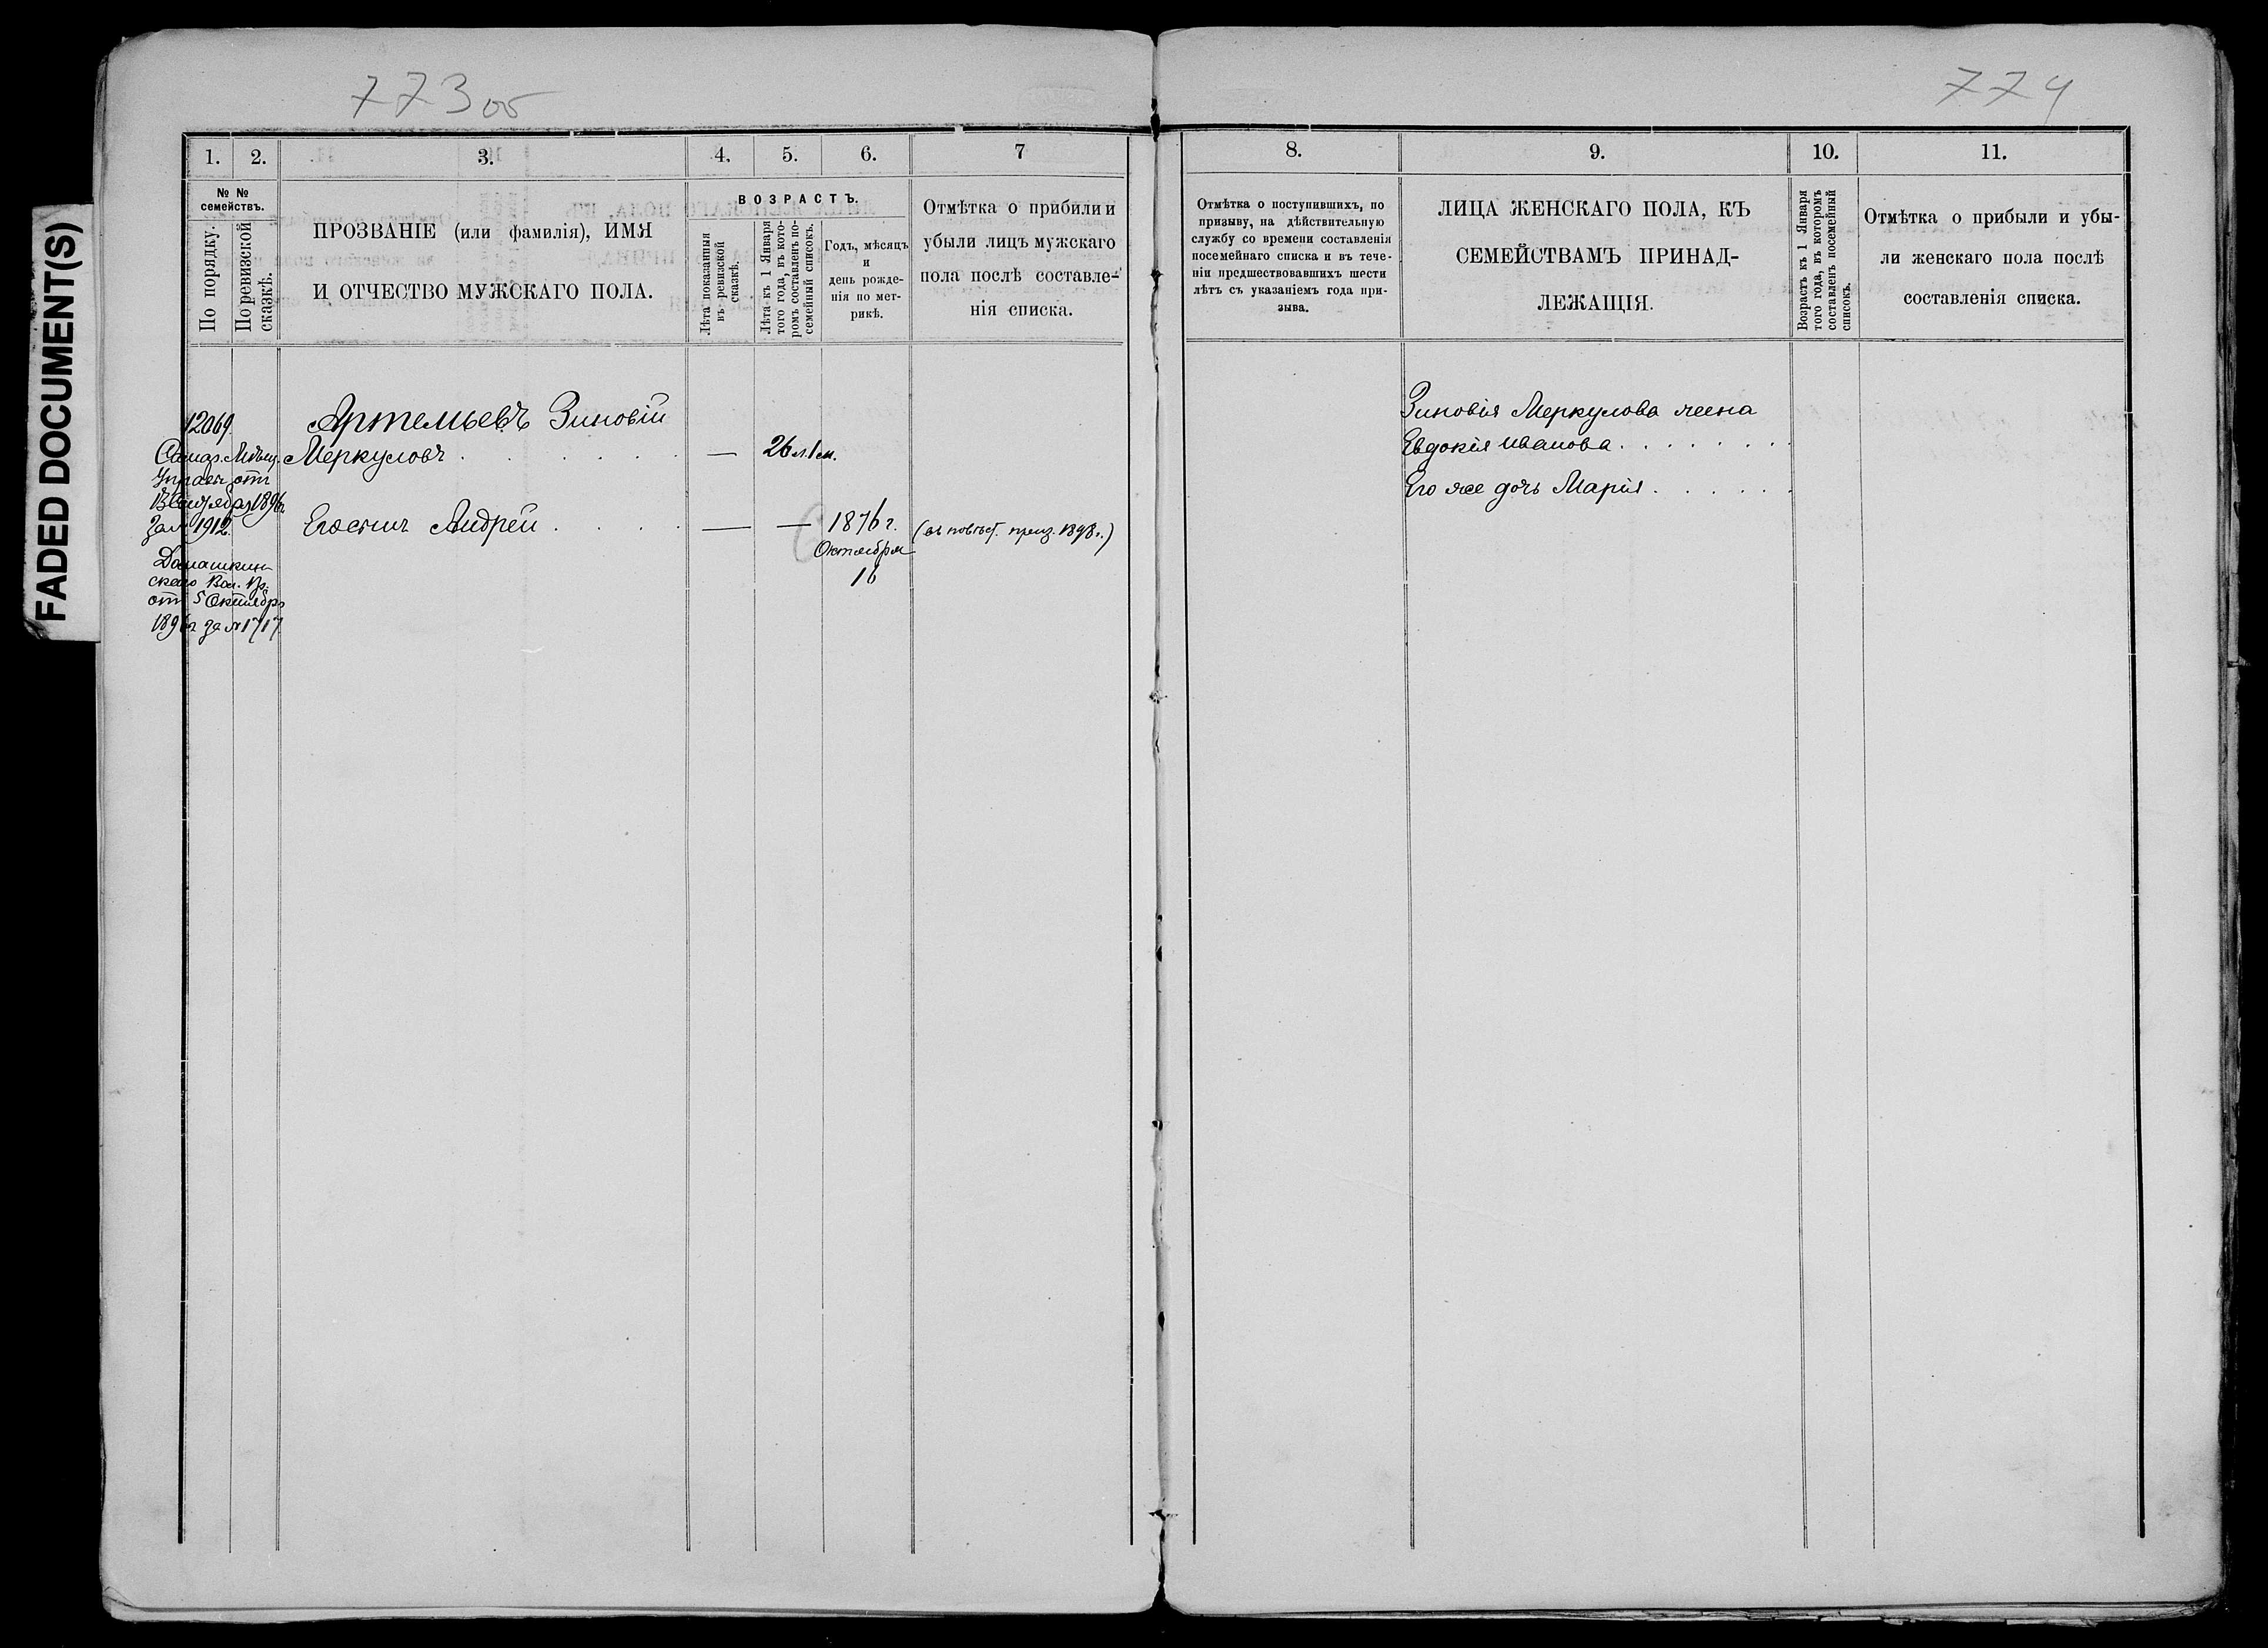 FADED DOCUMENT(S)
773 об
774
1.
2.
3.
4.
5.
6.
7
№ №
семействъ.
По порядку.
По ревизской
сказкѣ.
ПРОЗВАНІЕ (или фамилія), ИМЯ
И ОТЧЕСТВО МУЖСКАГО ПОЛА.
ВОЗРАСТЪ.
Лѣта показанныя
въ ревизской
сказкѣ.
Лѣта къ 1 Января
того года, въ кото-
ромъ составленъ по-
семейный списокъ.
Годъ, мѣсяцъ
и
день рожде-
нія по мет-
рикѣ.
Отмѣтка о прибыли и
убыли лицъ мужскаго
пола послѣ составле-
нія списка.
12069
Артемьевъ Зиновій
Самар. Мѣщ.
Меркуловъ . . . . . . — 26 л. 1 м.
Управы отъ
Сентября 1896 г.
за № 1912.
Домашкин-
скаго Вол. Пр.
отъ 5 Октября
1896 г за № 1717
Андрей . . . . — — 1876 г. (въ приз. 1898 г.)
Октября
16
8.
9.
10.
11.
Отмѣтка о поступившихъ, по
призыву, на дѣйствительную
службу со времени составленія
посемейнаго списка и въ тече-
ніи предшествовавшихъ шести
лѣтъ съ указаніемъ года при-
зыва.
ЛИЦА ЖЕНСКАГО ПОЛА, КЪ
СЕМЕЙСТВАМЪ ПРИНАД-
ЛЕЖАЩІЯ.
Возрастъ къ 1 Января
того года, въ которомъ
составленъ посемейный
списокъ.
Отмѣтка о прибыли и убы-
ли женскаго пола послѣ
составленія списка.
Зиновія Меркулова жена
Евдокія Иванова . . . . . . . .
Его же дочь Марія . . . . . .